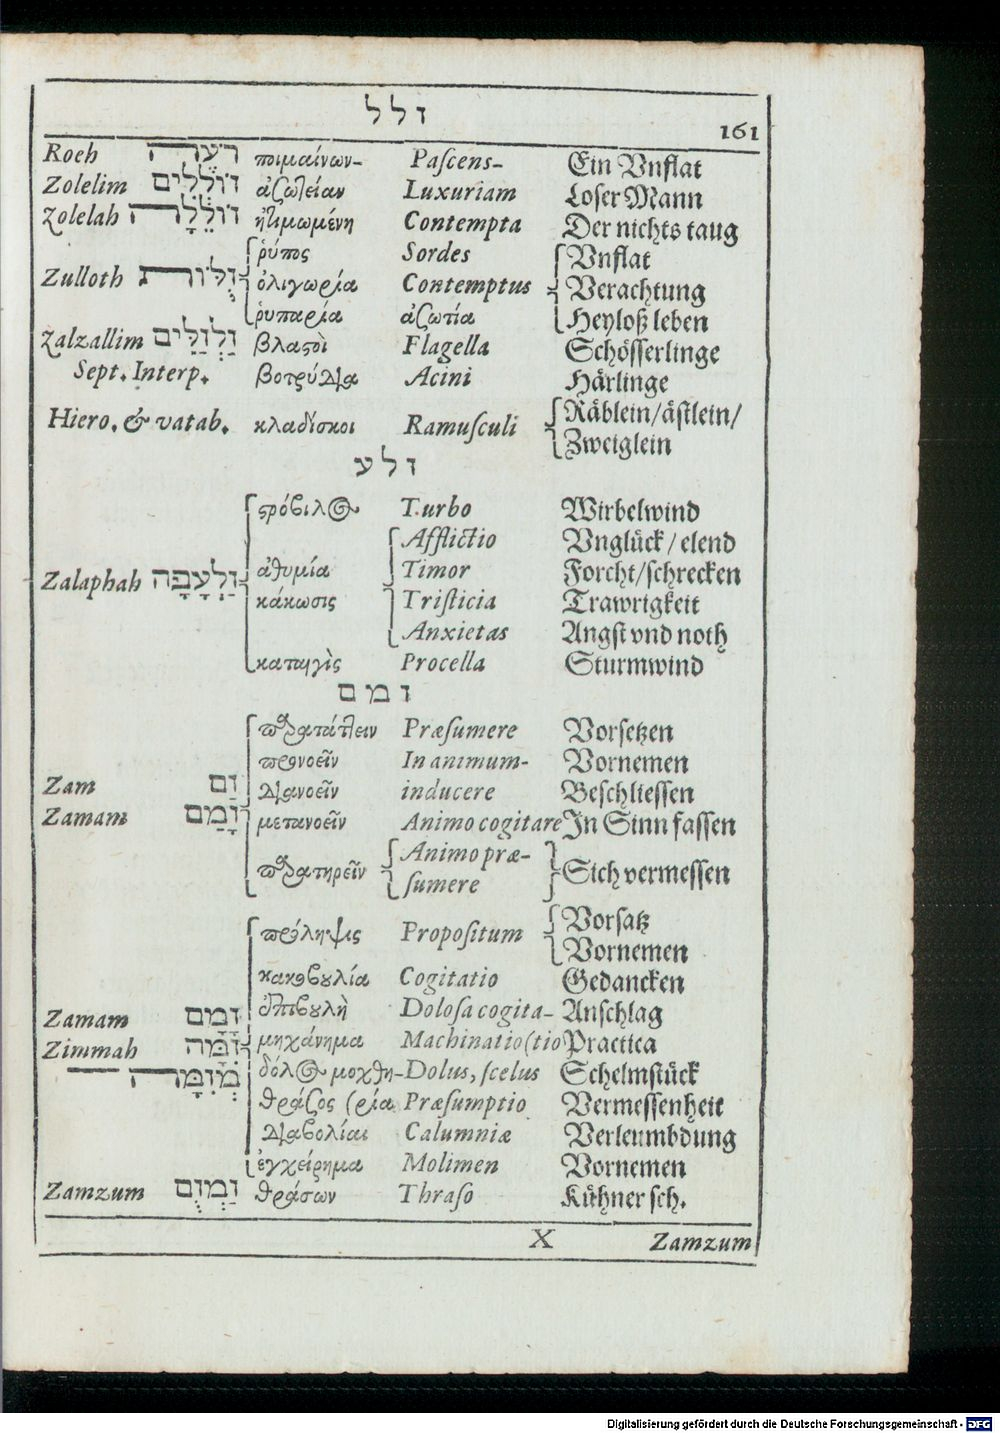 זלל
161
Roeh רֹעֶה ποιμαίνων- Paſcens- Ein Vnflat
Zolelim זוֹלְלִים ἀζωτείαν Luxuriam Loser Mann
Zolelah זוֹלֵלָה ἠτιμωμένη Contempta Der nichts taug
ῥύπος Sordes Vnflat
Zulloth זֻלּוּת ὀλιγωρία Contemptus Verachtung
ῥυπαρία ἀζωτία Heyloß leben
Zalzallim זַלְזַלִּים βλαϛοὶ Flagella Schösserlinge
Sept. Interp. βοτρύδια Acini Härlinge
Hiero. & vatab. κλαδίσκοι Ramuſculi Räblein/äſtlein/
Zweiglein
זלע
ϛρόβιλος Turbo Wirbelwind
Afflictio Vnglück/elend
ἀθυμία Timor Forcht/ſchrecken
Zalaphah זַלְעָפָה κάκωσις Triſticia Trawrigkeit
Anxietas Angſt vnd noth
καταιγὶς Procella Sturmwind
זמם
παρατάττειν Præſumere Vorſetzen
προνοεῖν In animum- Vornemen
Zam זַם διανοεῖν inducere Beſchlieſſen
Zamam זָמַם μετανοεῖν Animo cogitare In Sinn faſſen
Animo præ-
παρατηρεῖν Sich vermeſſen
ſumere
Vorſatz
πρόληψις Propoſitum
Vornemen
κακοβουλία Cogitatio Gedancken
ἐπιβουλὴ Doloſa cogita- Anſchlag
Zamam זָמַם
Zimmah זִמָּה μηχάνημα Machinatio (tio Practica
מְזִמָּה δόλος μοχθη- Dolus, ſcelus Schelmſtück
θράσος (ρία Præſumptio Vermeſſenheit
διαβολίαι Calumniæ Verleumbdung
ἐγχείρημα Molimen Vornemen
Zamzum זַמְזֻם θράσων Thraſo Kühner ſch.
X Zamzum
Digitalisierung gefördert durch die Deutsche Forschungsgemeinschaft - DFG